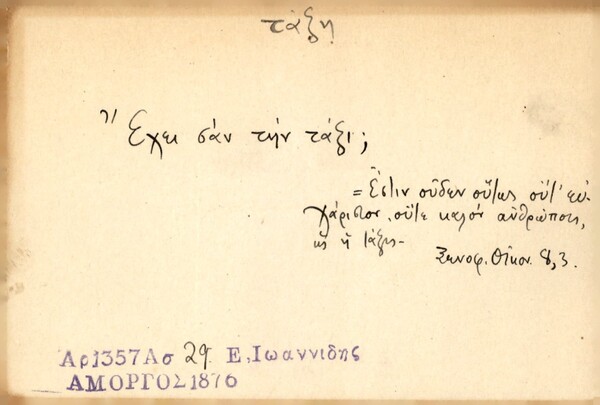 τάξη
Τί Ἔχει σὰν τὴν τάξι;
= Ἔστιν οὐδὲν οὕτως οὔτ' εὐ-
χάριστον, οὔτε καλὸν ἀνθρώποις,
ὡς ἡ τάξις-
Ξενοφ. Οἰκον. 8,3.
Αρ1357Ασ 29 Ε, Ιωαννιδης
ΑΜΟΡΓΟΣ1876